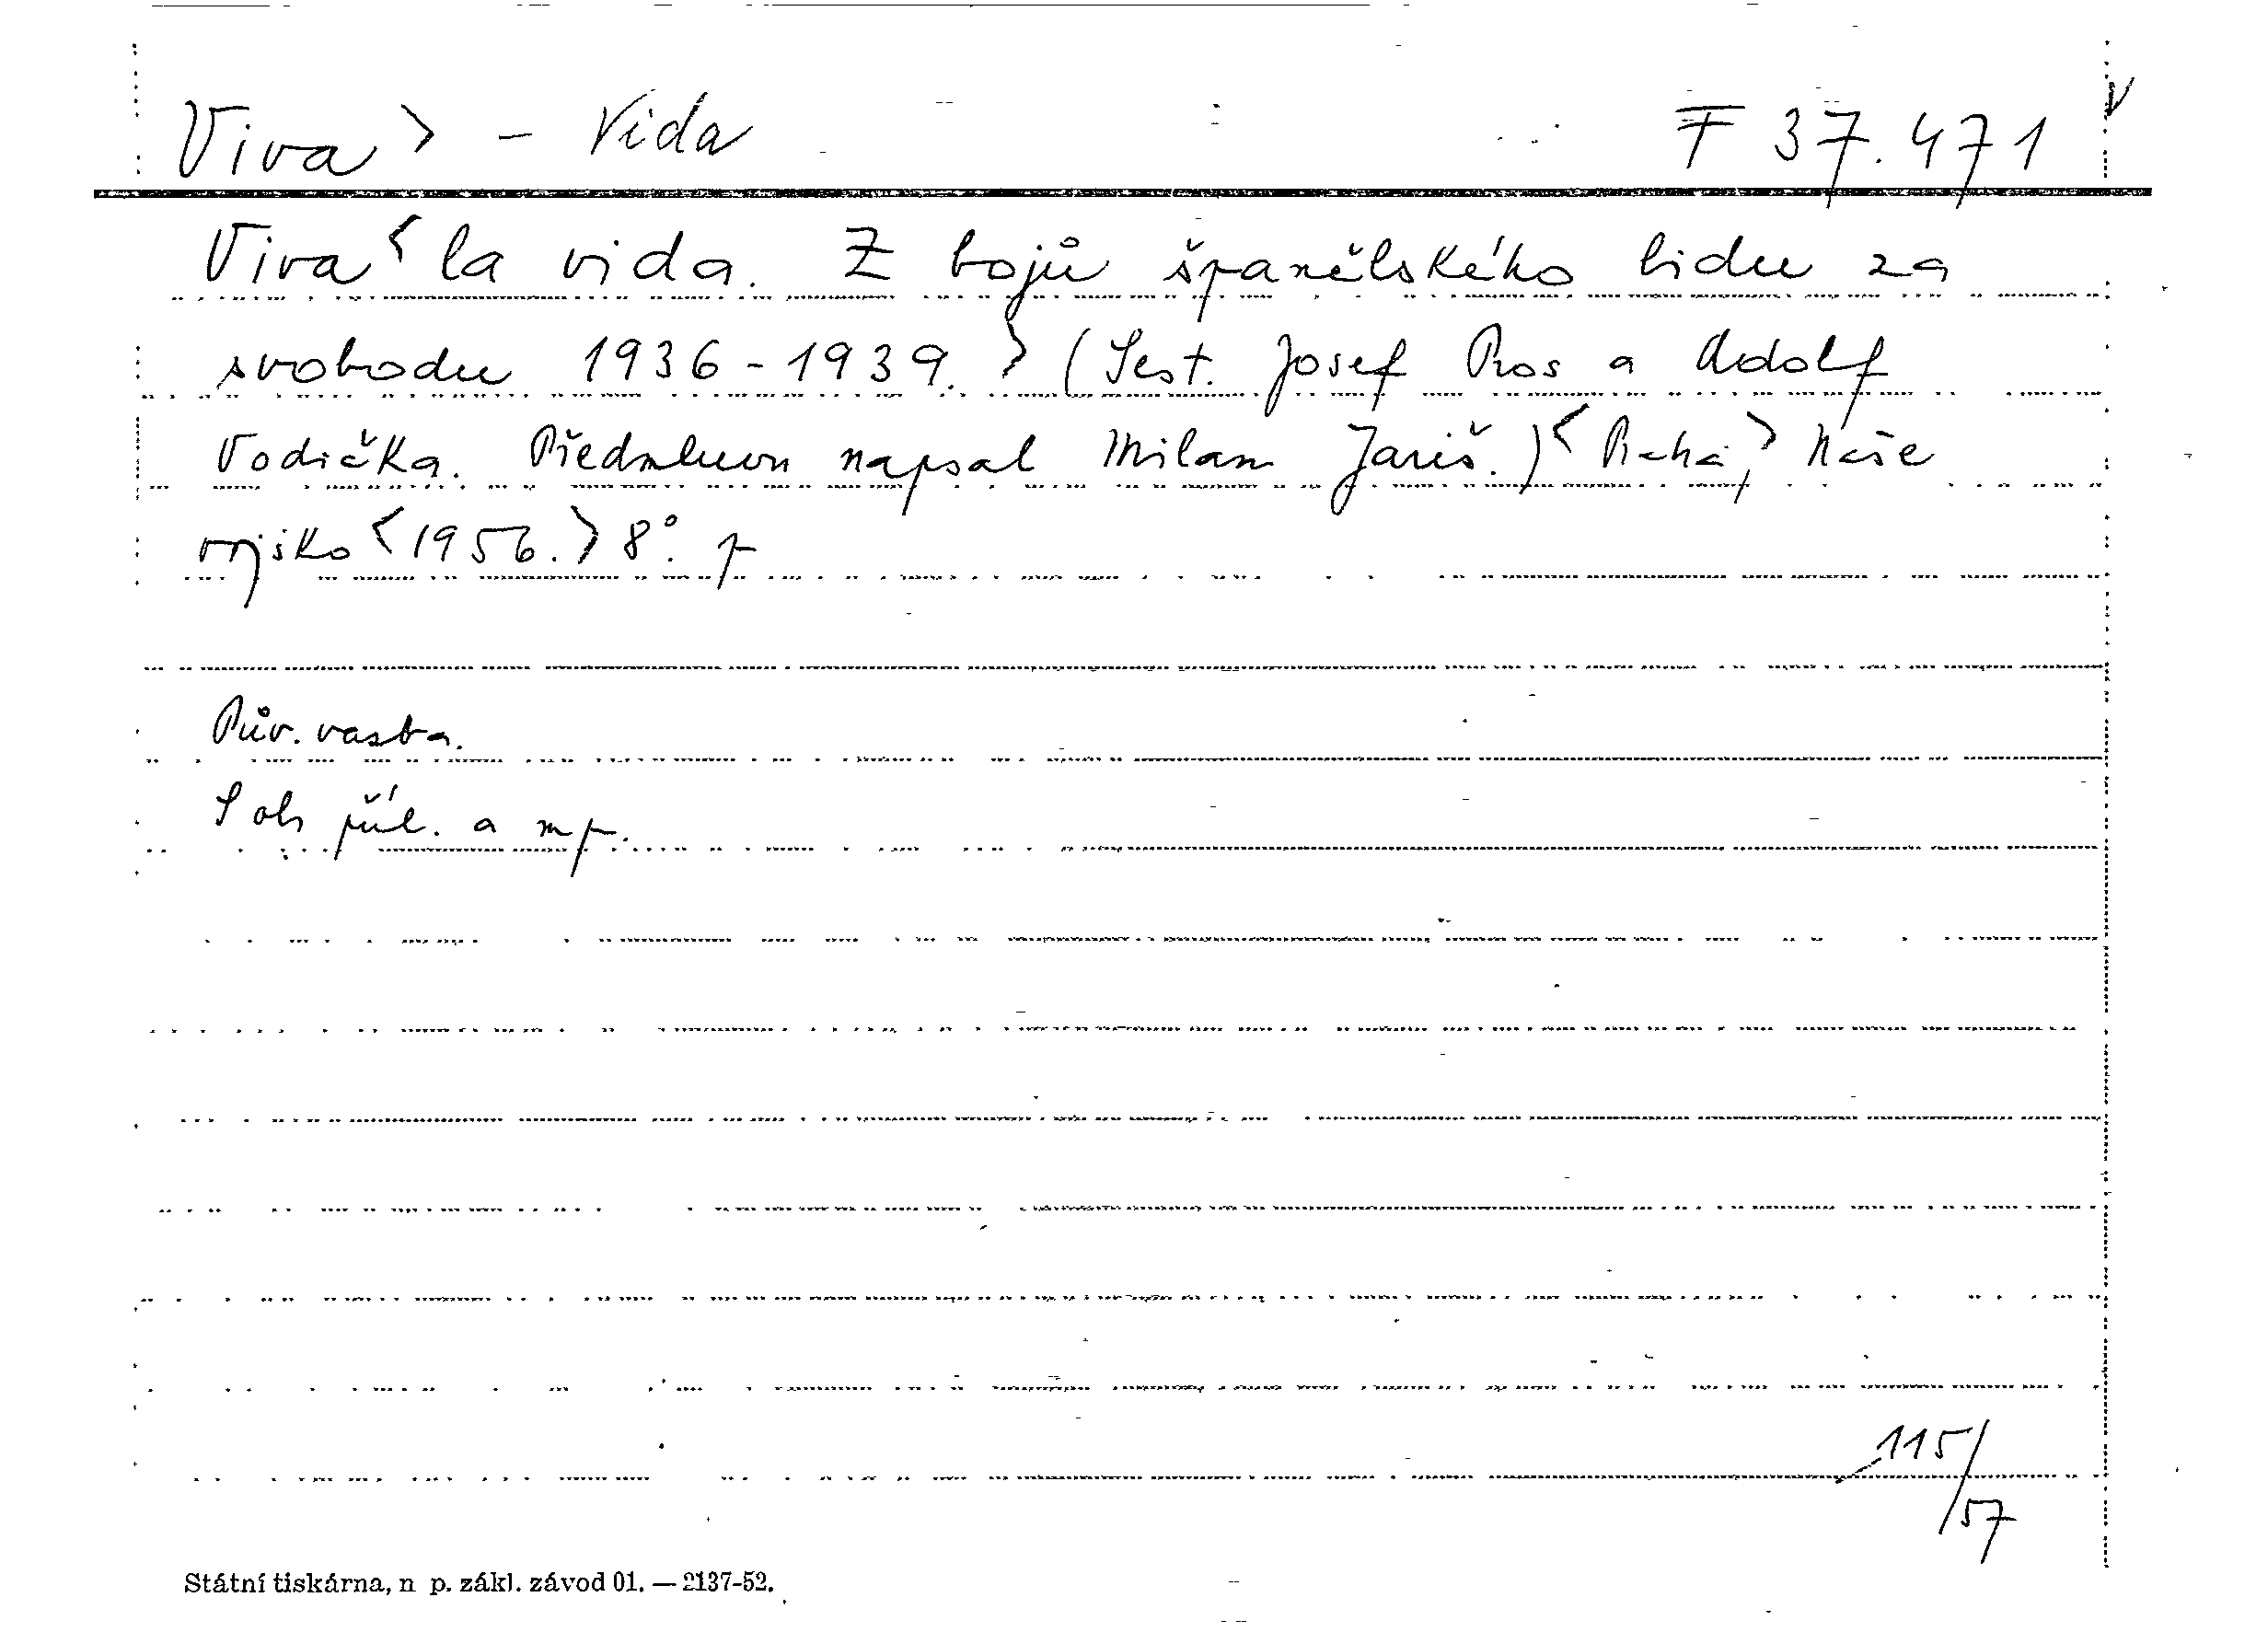 Viva > - Vida F 37.471 V
Viva < la vida. Z bojů španělského lidu za
svobodu 1936-1939. > (Sest. Josef Ros a Adolf
Vodička. Předmluvu napsal Milan Jariš.) < Praha, > Naše
vojsko < 1956. > 8°. p
Pův. vazba.
S obr. příl. a mp.
115/57
Státní tiskárna, n p. zákl. závod 01. — 2137-52.